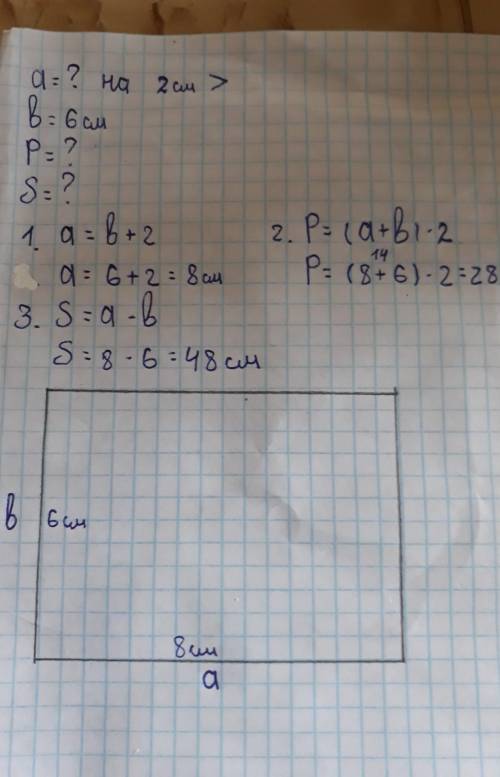 а = ? на 2см >
в = 6см
P = ?
S = ?
1. а = в + 2
а = 6 + 2 = 8см
2. P = (а + в) · 2
14
P = (8 + 6) · 2 = 28
3. S = а · в
S = 8 · 6 = 48см
в
6см
8см
а